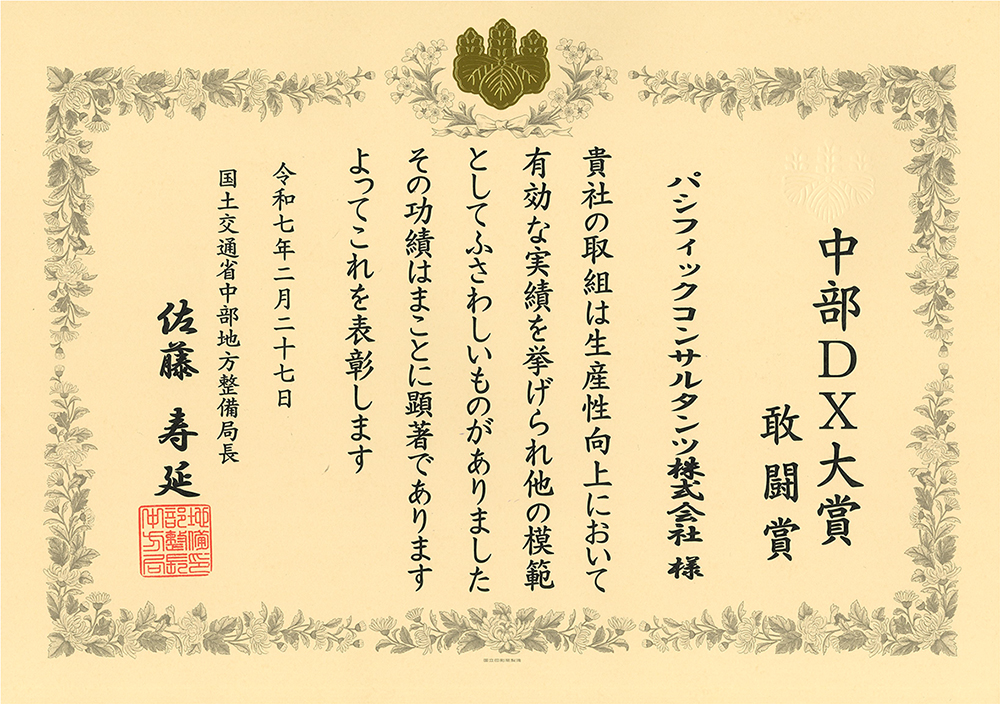 中部DX大賞
敢闘賞
パシフィックコンサルタンツ株式会社 様
貴社の取組は生産性向上において
有効な実績を挙げられ他の模範
としてふさわしいものがありました
その功績はまことに顕著であります
よってこれを表彰します
令和七年二月二十七日
国土交通省中部地方整備局長
佐藤 寿延